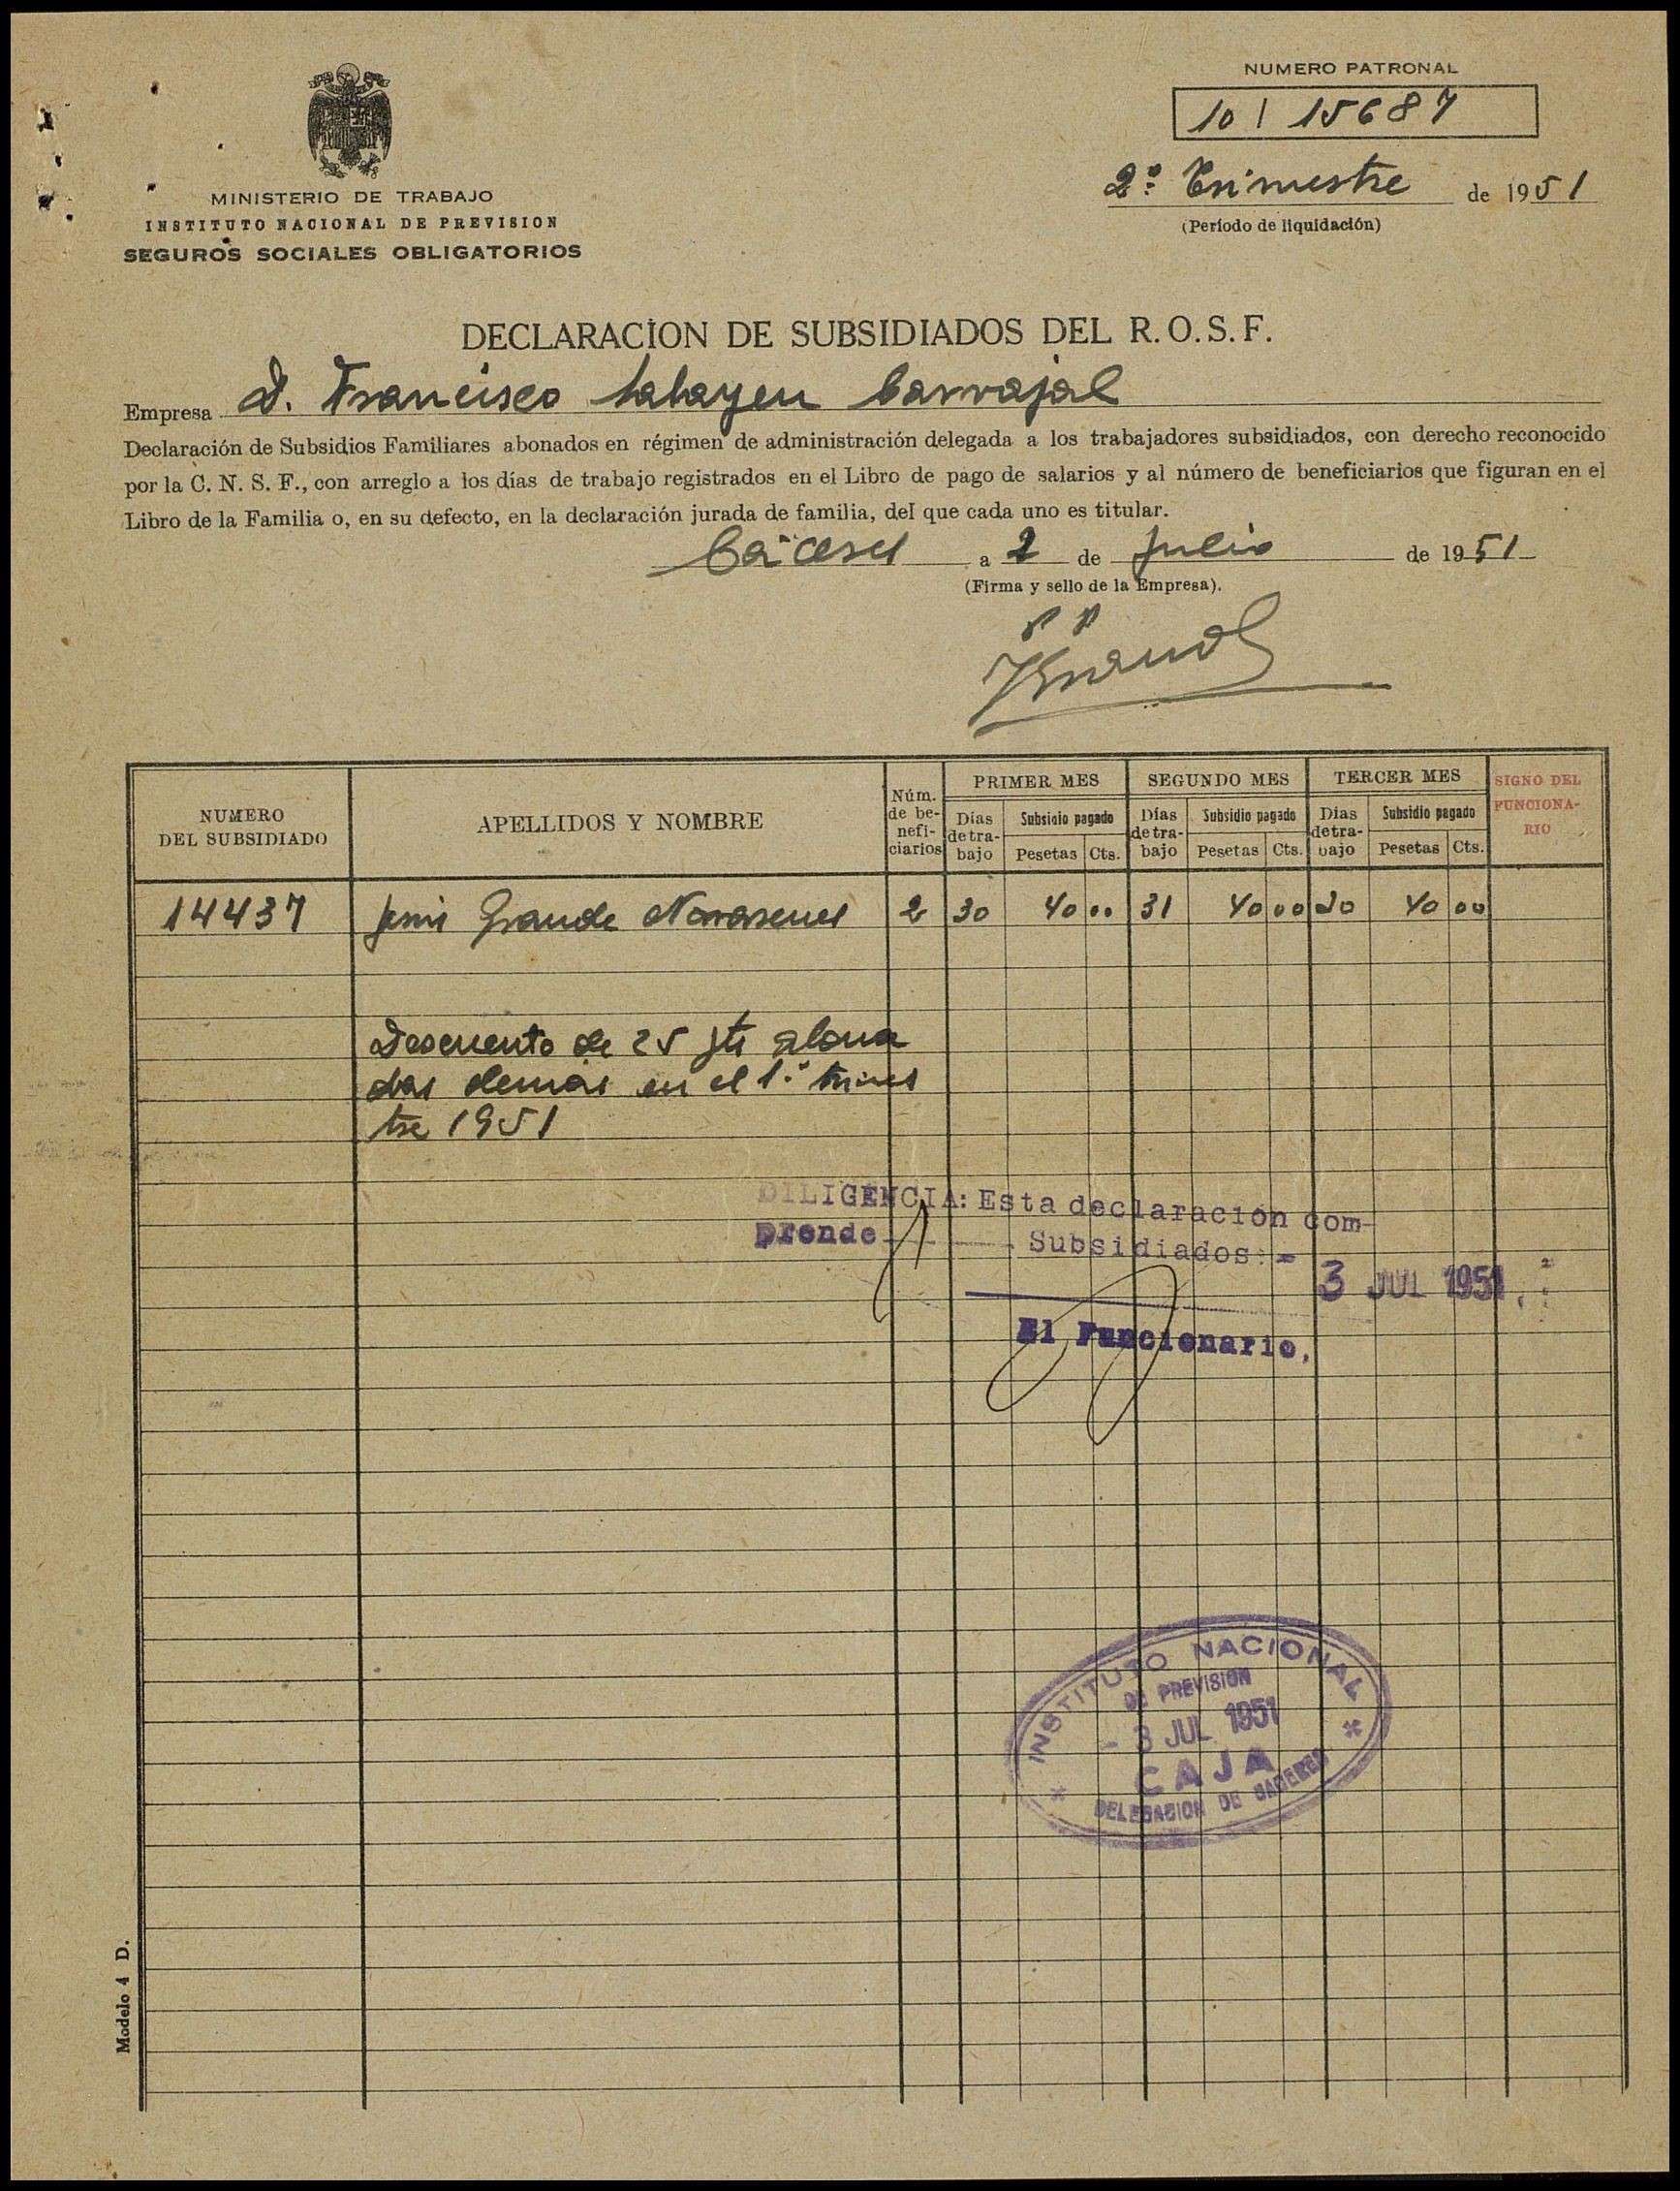 NUMERO PATRONAL
10 | 15687
2º Trimestre de 1951
(Período de liquidación)
MINISTERIO DE TRABAJO
INSTITUTO NACIONAL DE PREVISION
SEGUROS SOCIALES OBLIGATORIOS
DECLARACION DE SUBSIDIADOS DEL R.O.S.F.
Empresa D. Francisco Carvajal
Declaración de Subsidios Familiares abonados en régimen de administración delegada a los trabajadores subsidiados, con derecho reconocido
por la C. N. S. F., con arreglo a los días de trabajo registrados en el Libro de pago de salarios y al número de beneficiarios que figuran en el
Libro de la Familia o, en su defecto, en la declaración jurada de familia, del que cada uno es titular.
Cáceres a 2 de Julio de 1951
(Firma y sello de la Empresa).
NUMERO DEL SUBSIDIADO
APELLIDOS Y NOMBRE
Núm. de be-nefi-ciarios
PRIMER MES
SEGUNDO MES
TERCER MES
SIGNO DEL FUNCIONA-RIO
Días de tra-bajo Subsidio pagado Pesetas Cts.
Días de tra-bajo Subsidio pagado Pesetas Cts.
Días de tra-bajo Subsidio pagado Pesetas Cts.
14437 Jesús Grande 2 30 40 00 31 40 00 30 40 00
Descuento de 25 pts abona
das demás en el 1.º trimes
tre 1951
DILIGENCIA: Esta declaración com-
prende 1 Subsidiados.-
3 JUL 1951
El Funcionario,
INSTITUTO NACIONAL
DE PREVISION
- 3 JUL 1951
CAJA
DELEGACION DE CACERES
Modelo 4 D.